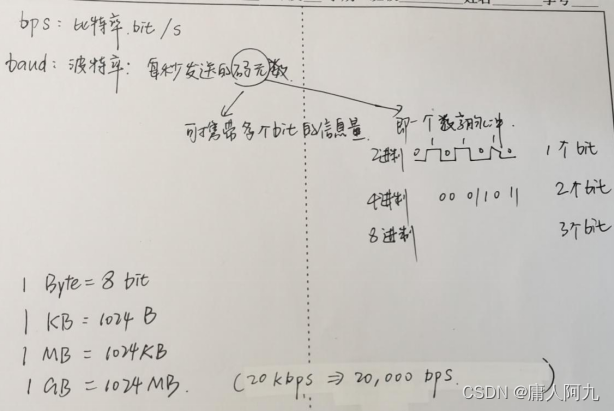 姓名 学号
bps: 比特率. bit/s
baud: 波特率: 每秒发送的码元数
可携带多个bit的信息量. 即一个数字脉冲.
2进制 0 1 0 1 0 1 0 1个bit
4进制 00 01 10 11 2个bit
8进制 3个bit
1 Byte = 8 bit
1 KB = 1024 B
1 MB = 1024KB
1 GB = 1024MB. (20 kbps ⇒ 20,000 bps. )
CSDN @庸人阿九